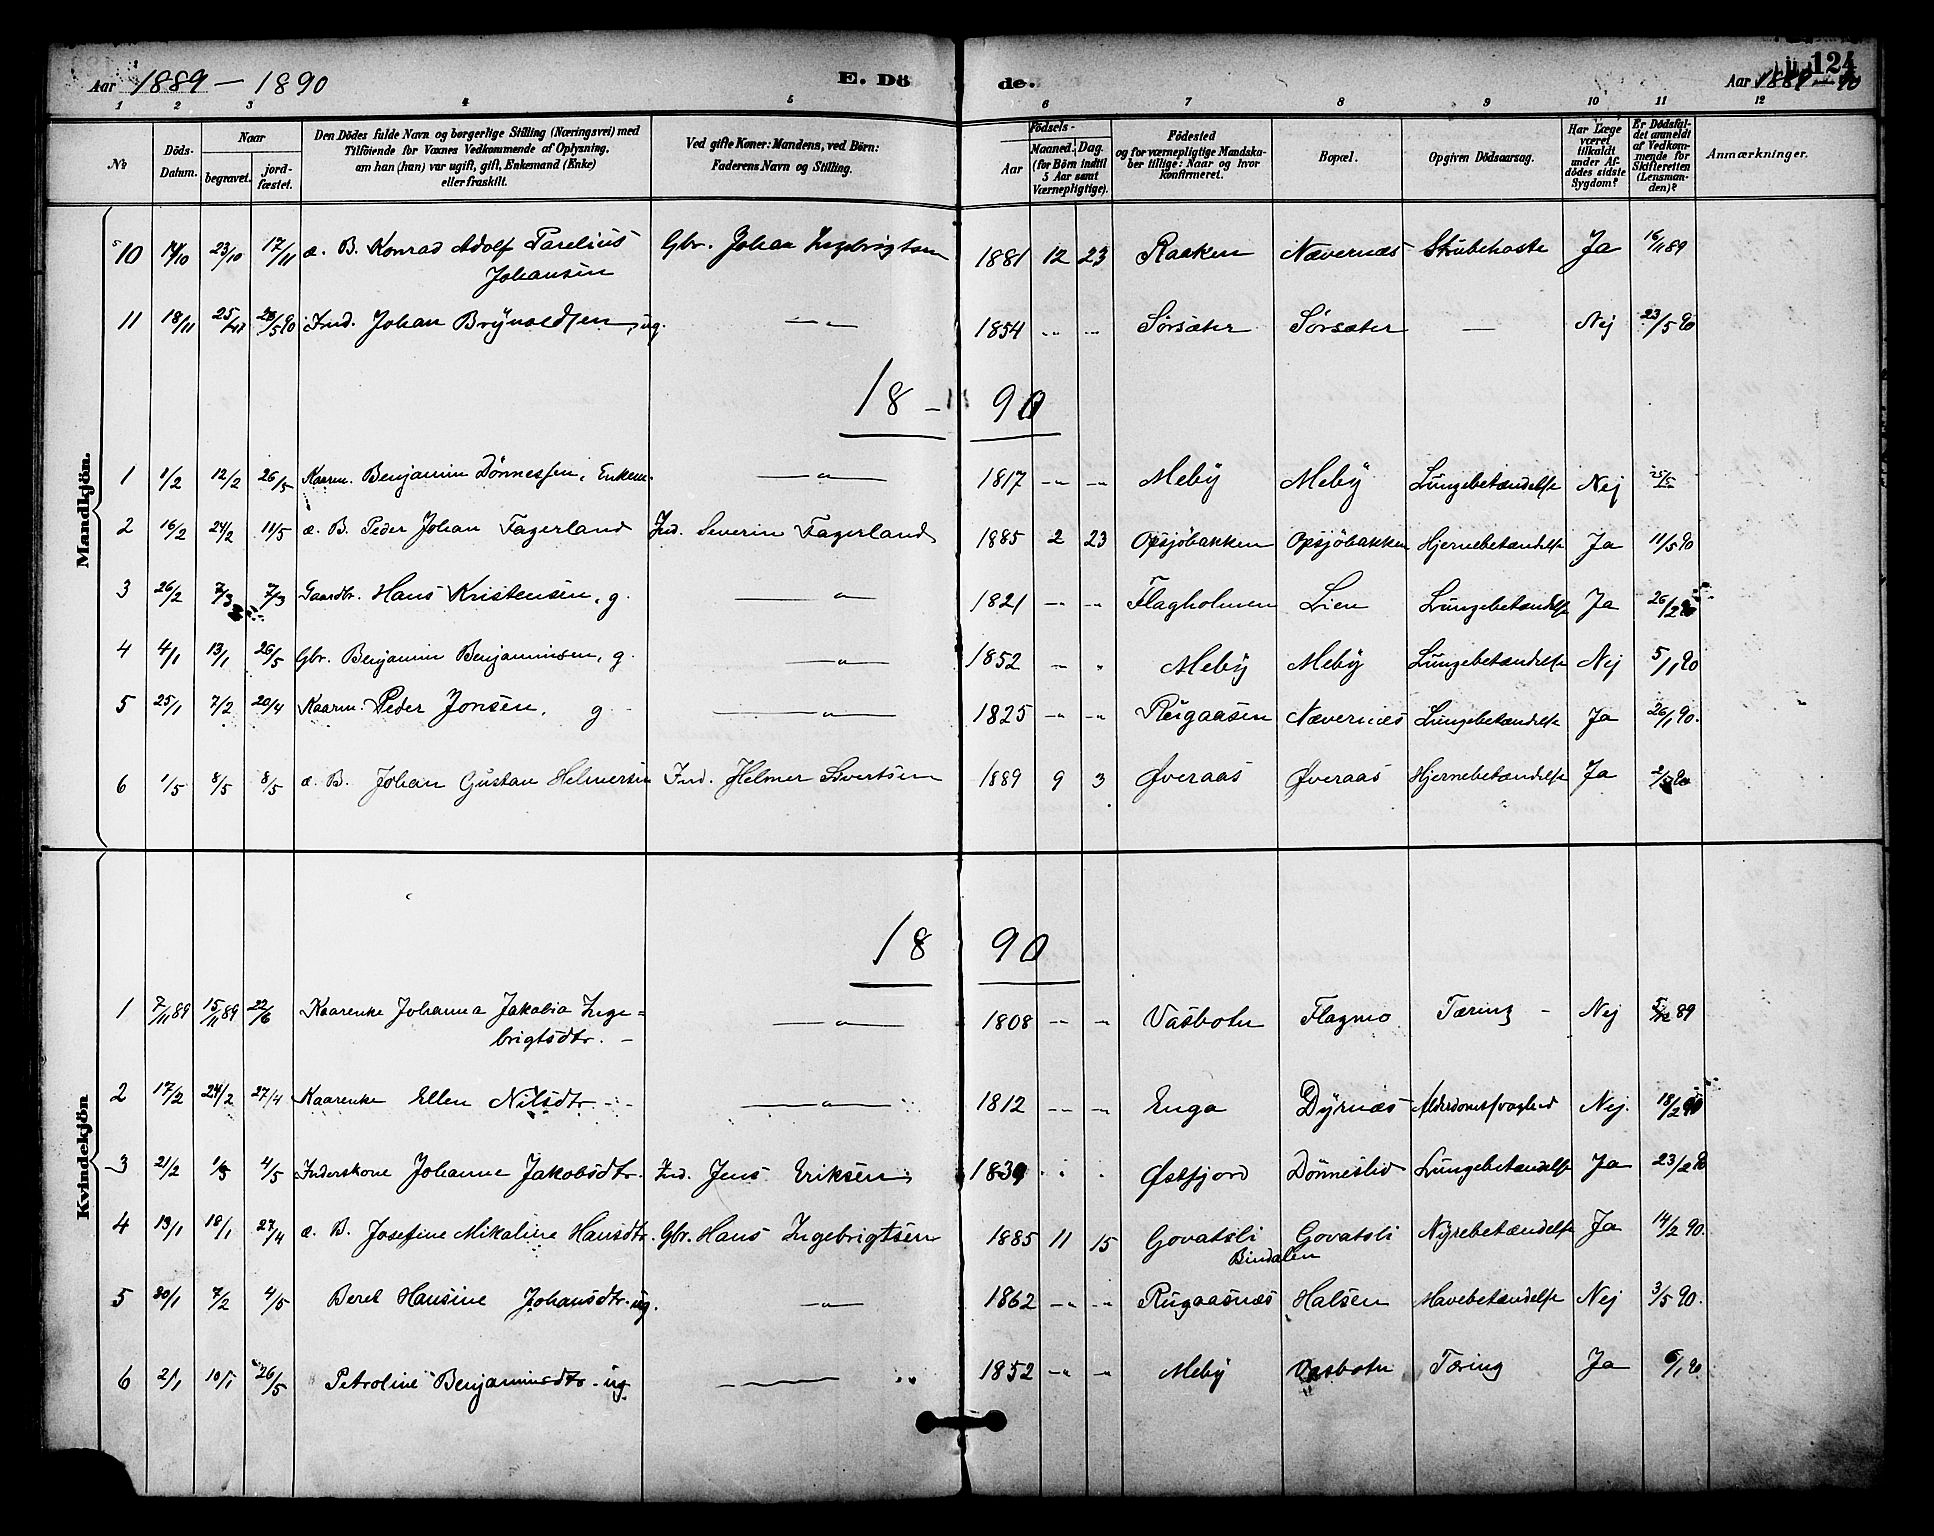 Aar 1889 - 1890 E. Dö de. Aar 1889-90 124
1 2 3 4 5 6 7 8 9 10 11 12
No Döds-Datum. Naar begravet. jord-fæstet. Den Dödes fulde Navn og borgerlige Stilling (Næringsvei) med Tilföiende for Voxnes Vedkommende af Oplysning, om han (hun) var ugift, gift, Enkemand (Enke) eller fraskilt. Ved gifte Koner: Mandens, ved Börn: Faderens Navn og Stilling. Födsels- Aar Maaned. Dag. (for Börn indtil 5 Aar samt Værnepligtige). Födested og for værnepligtige Mandskaber tillige: Naar og hvor konfirmeret. Bopæl. Opgiven Dödsaarsag. Har Læge været tilkaldt under Afdödes sidste Sygdom? Er Dödsfaldet anmeldt af Vedkommende for Skifteretten (Lensmanden)? Anmærkninger.
Mandkjön.
10 14/10 23/10 17/11 æ. B. Konrad Adolf Parelius Gbr. Johan Ingebrigtsen 1881 12 23 Raaken Nævernæs Strubehoste Ja 16/11 89
Johansen
11 18/11 25/11 26/5 90 Ind. Johan Brynoldsen, ug. — " — 1854 " " Sörsæter Sörsæter — Nej 23/5 90
18 - 90
1 1/2 12/2 26/5 Kaarm. Benjamin Dönnessen, Enkem. — " — 1817 " " Meby Meby Lungebetændelse Nej 25/5
2 16/2 24/2 11/5 æ. B. Peder Johan Fagerland Ind. Severin Fagerland 1885 2 23 Opsjöbakken Opsjöbakken Hjernebetændelse Ja 11/5 90
3 26/2 7/3 7/3 Gaardbr. Hans Kristensen, g. — " — 1821 " " Flagholmen Lien Lungebetændelse Ja 26/2 90
4 4/1 13/1 26/5 Gbr. Benjamin Benjaminsen, g. — " — 1852 " " Meby Meby Lungebetændelse Nej 5/1 90
5 25/1 7/2 20/4 Kaarm. Peder Jonsen, g — " — 1825 " " Rugaasen Nævernæs Lungebetændelse Ja 26/1 90.
6 1/5 8/5 8/5 æ. B. Johan Gustav Helmersen Ind. Helmer Sivertsen 1889 9 3 Øveraas Øveraas Hjernebetændelse Ja 2/5 90
Kvindekjön
18 90
1 7/11 89 15/11 89 22/6 Kaarenke Johanna Jakobia Inge= — " — 1808 " " Vasbotn Flagmo Tæring - Nej 5/12 89
brigtsdtr. -
2 17/2 24/2 27/4 Kaarenke Ellen Nilsdtr. — " — 1812 " " Enga Dyrnæs Alderdomssvaghed Nej. 18/2 90
3 21/2 1/3 4/5 Inderskone Johanne Jakobsdtr. Ind. Jens Eriksen 1839 " " Østfjord Dönneslid Lungebetændelse Ja 23/2 90
4 13/1 18/1 27/4 æ. B. Josefine Mikaline Hansdtr. Gbr. Hans Ingebrigtsen 1885 11 15 Govatsli Govatsli Nyrebetændelse Ja 14/2 90.
Bindalen
5 30/1 7/2 4/5 Berel Hansine Johansdtr. ug. — " — 1862 " " Rugaasnæs Halsen Mavebetændelse Nej 3/5 90.
6 2/1 10/1 26/5 Petroline Benjaminsdtr. ug. — " 1852 " " Meby Vasbotn Tæring Ja 6/1 90